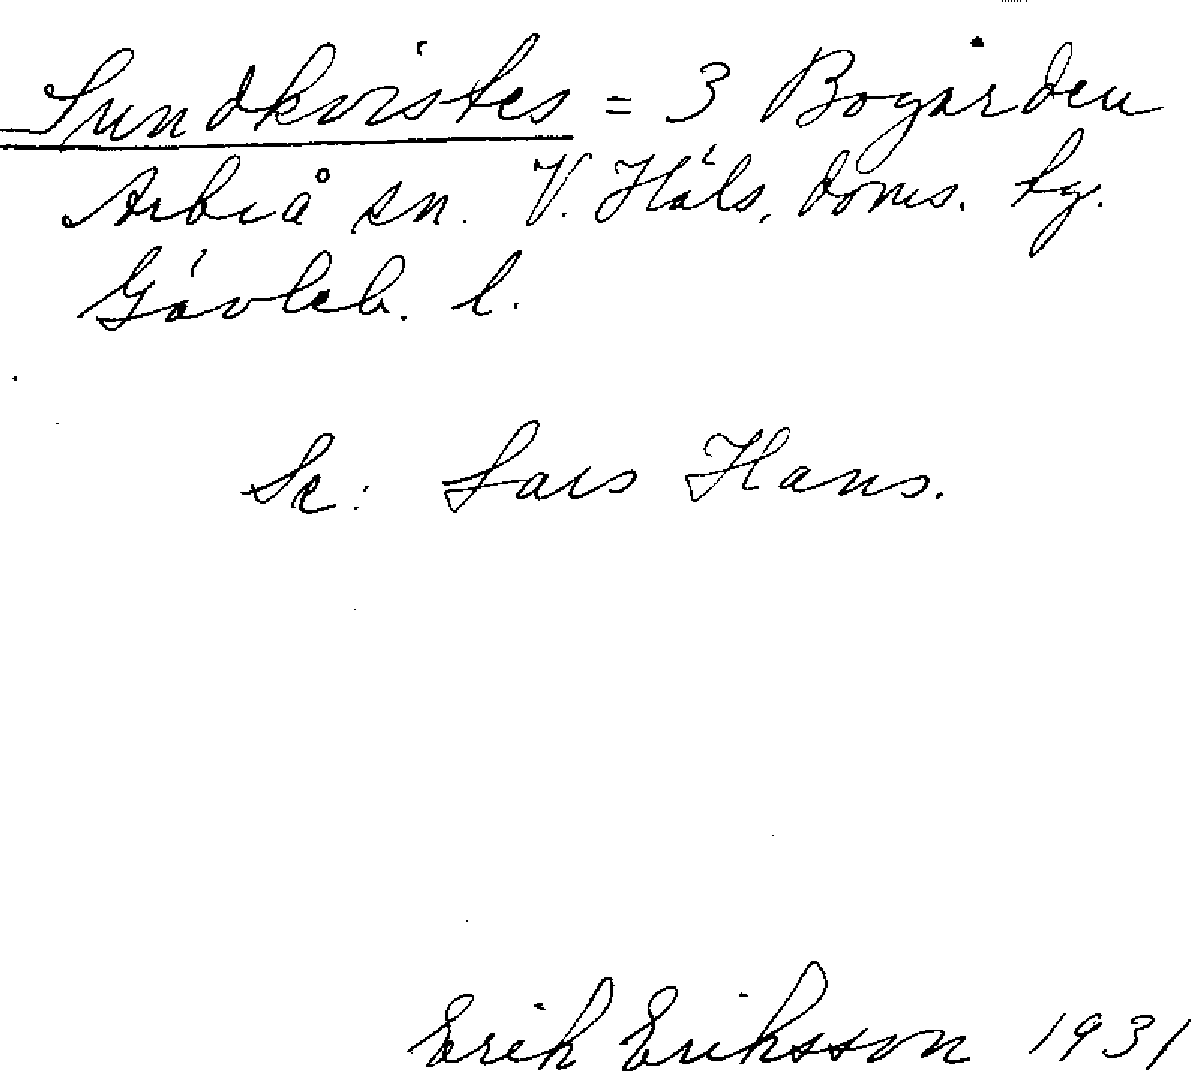 Sundkvistes = 3 Bogården
Arbrå sn. V. Häls. doms. tg.
Gävleb. l.
Se: Lars Hans.
Erik Eriksson 1931